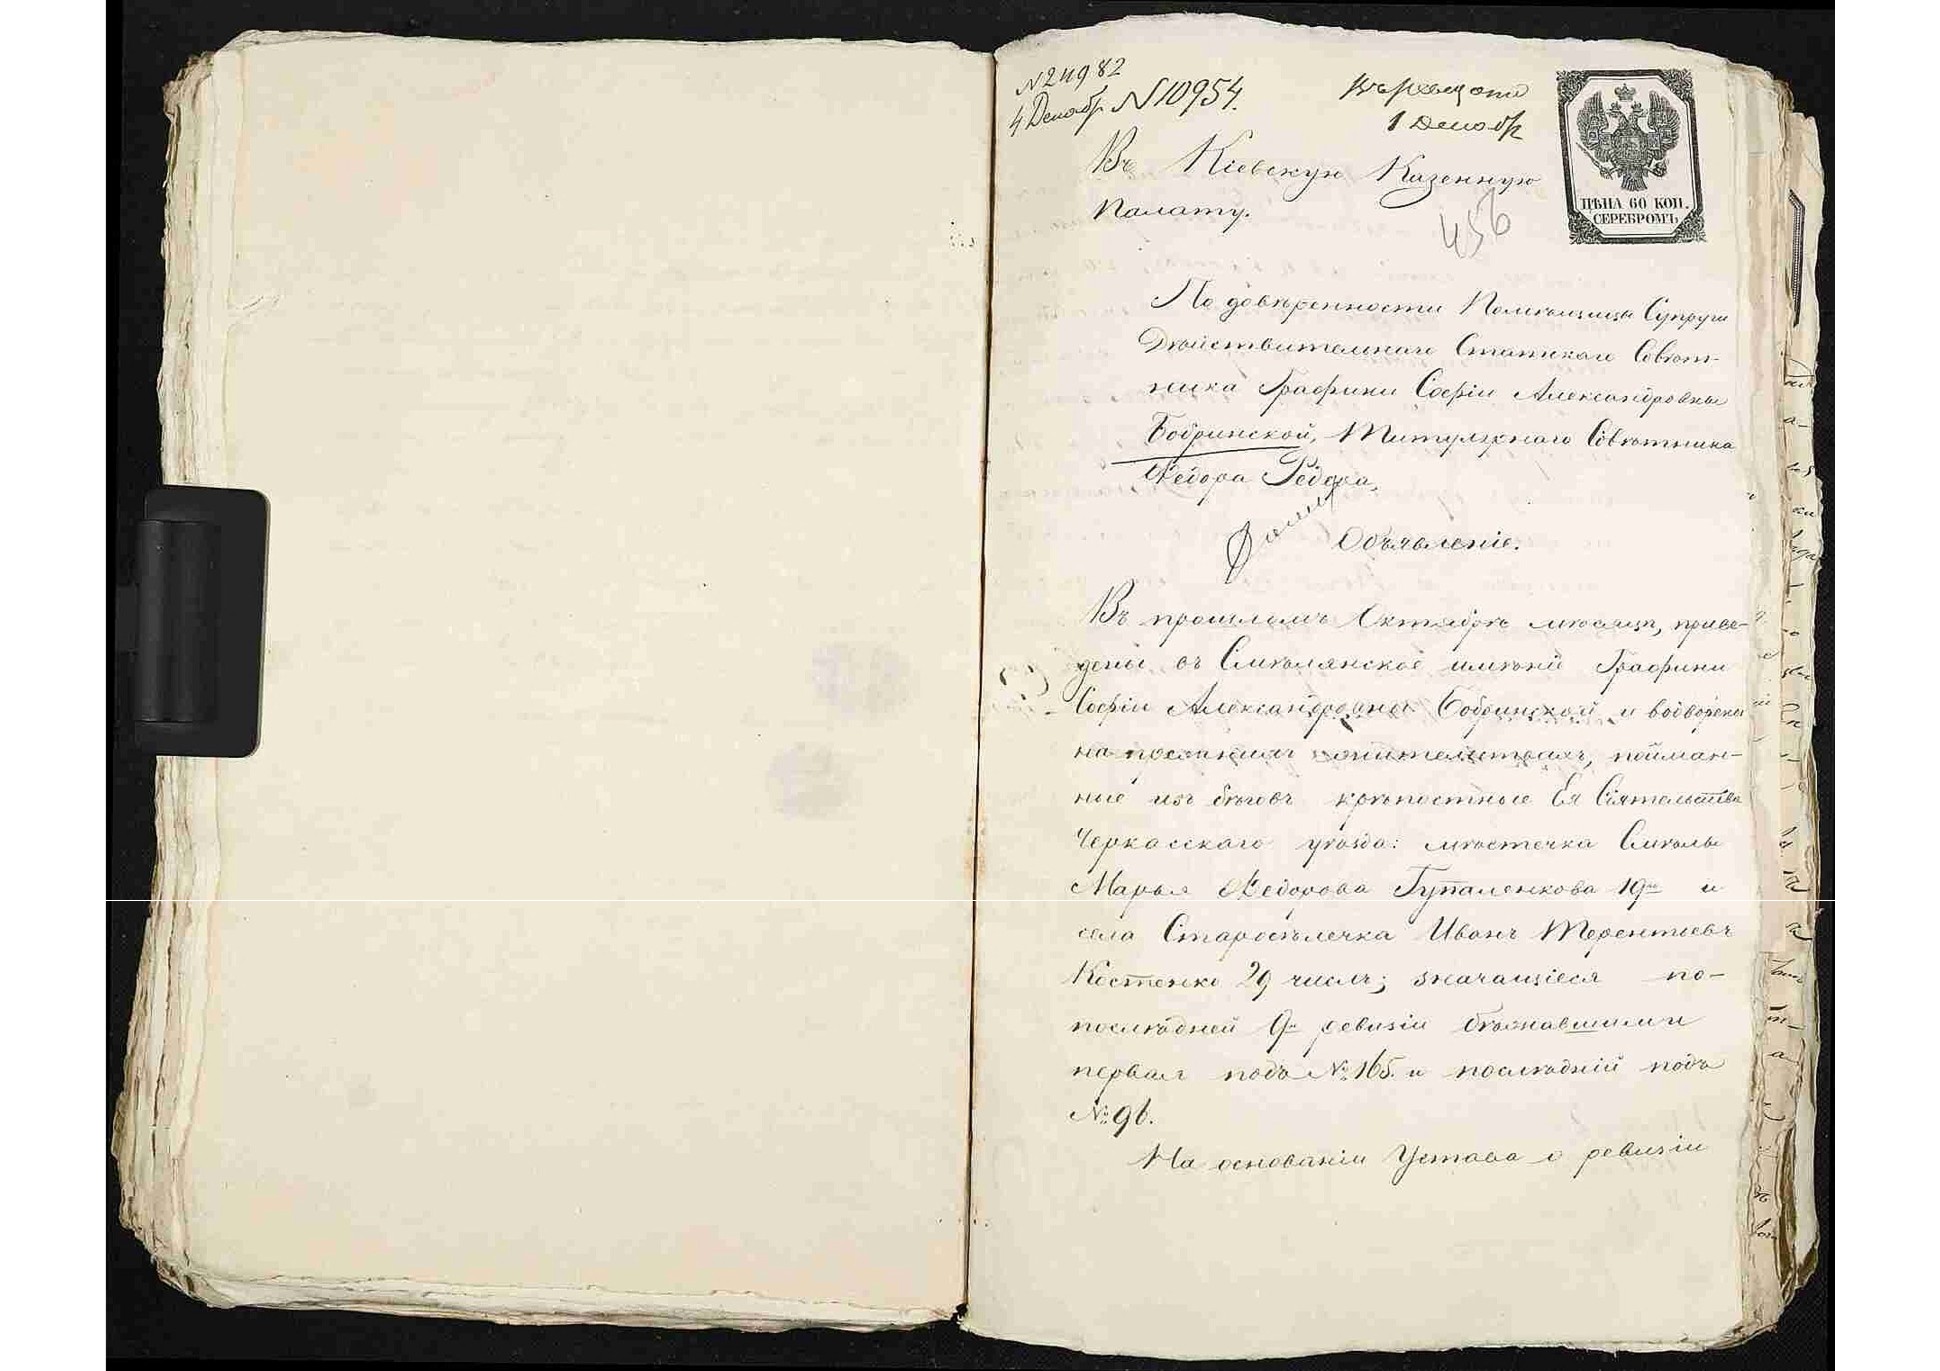 N 24982
4 Декабр N 10954.
1 Декабр
ЦѢНА 60 КОП.
СЕРЕБРОМЪ
Въ Кіевскую Казенную
Палату.
456
По довѣренности Помѣщицы Супруги
Дѣйствительнаго Статскаго Совѣт-
ника Графини Софіи Александровны
Бобринской, Титулярнаго Совѣтника
Федора Федора
Объявленіе.
Въ прошломъ Октябрѣ мѣсяцѣ, приве-
дены въ Смѣлянское имѣніе Графини
Софіи Александровны Бобринской и водворены
на прежнихъ жительствахъ, пойман-
ные изъ бѣговъ крѣпостные Ея Сіятельства
Черкасскаго уѣзда: мѣстечка Смѣлы
Марья Федорова Гупаленкова 19го и
села Старосѣлечка Иванъ Терентіевъ
Костенко 29 числъ; значащіеся по-
послѣдней 9й ревизіи бѣжавшими
первая подъ № 165. и послѣдній подъ
№ 96.
На основаніи Устава о ревизіи